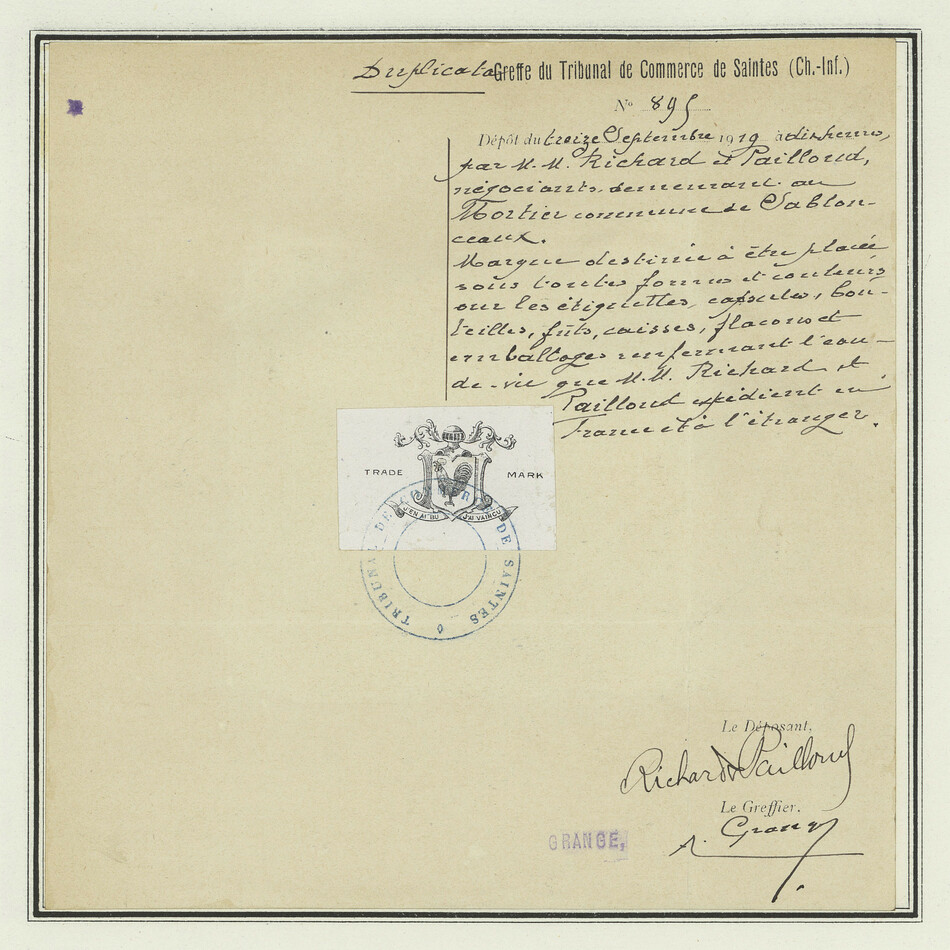 Duplicata Greffe du Tribunal de Commerce de Saintes (Ch.-Inf.)
N° 895
Dépôt du treize Septembre 1919 à dix heures,
par M.M. Richard et Pailloud,
négociants, demeurant au
Mortier commune de Sablon-
ceaux.
Marque destinée à être placée
sous toutes formes et couleurs
sur les étiquettes, capsules, bou-
teilles, fûts, caisses, flacons et
emballages renfermant l'eau-
de-vie que M.M. Richard et
Pailloud expédient en
France et à l'étranger.
TRADE MARK
J'EN AI BU J'AI VAINCU
TRIBUNAL DE COMMERCE DE SAINTES
Le Déposant,
Richard & Pailloud
Le Greffier,
GRANGE,
Grange